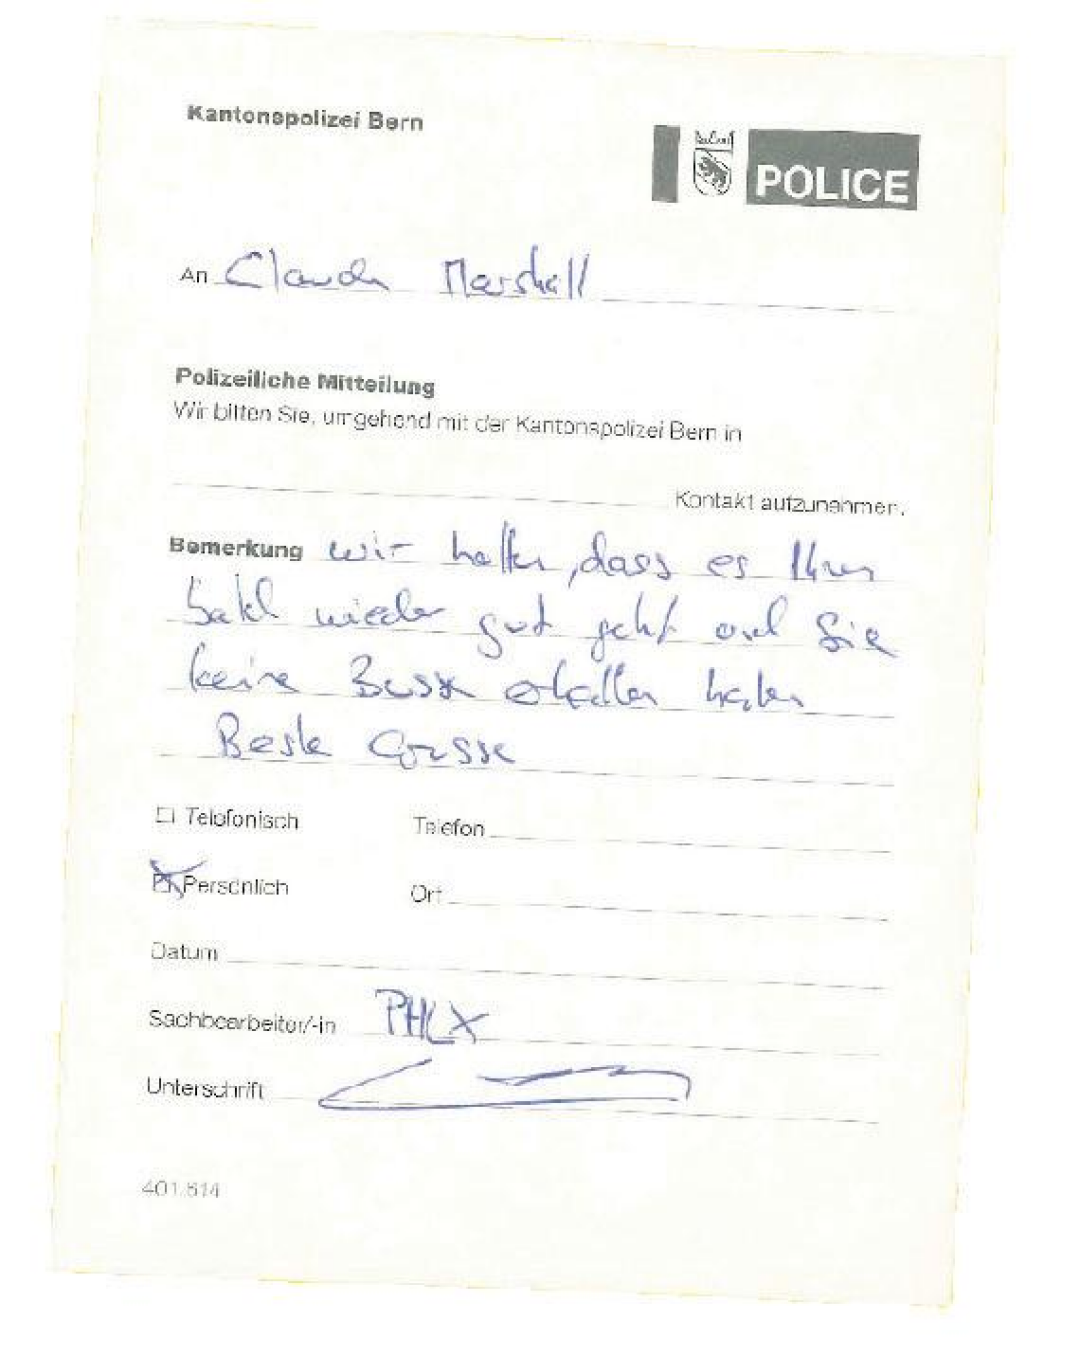 Kantonspolizei Bern
POLICE
An Claudia Marshall
Polizeiliche Mitteilung
Wir bitten Sie, umgehend mit der Kantonspolizei Bern in
Kontakt aufzunehmen.
Bemerkung wir hoffen, dass es Ihrem
wieder gut geht und Sie
keine Busse erhalten haben
Beste Grüsse
Telefonisch Telefon
Persönlich Ort
Datum
Sachbearbeiter/-in
Unterschrift
401.614